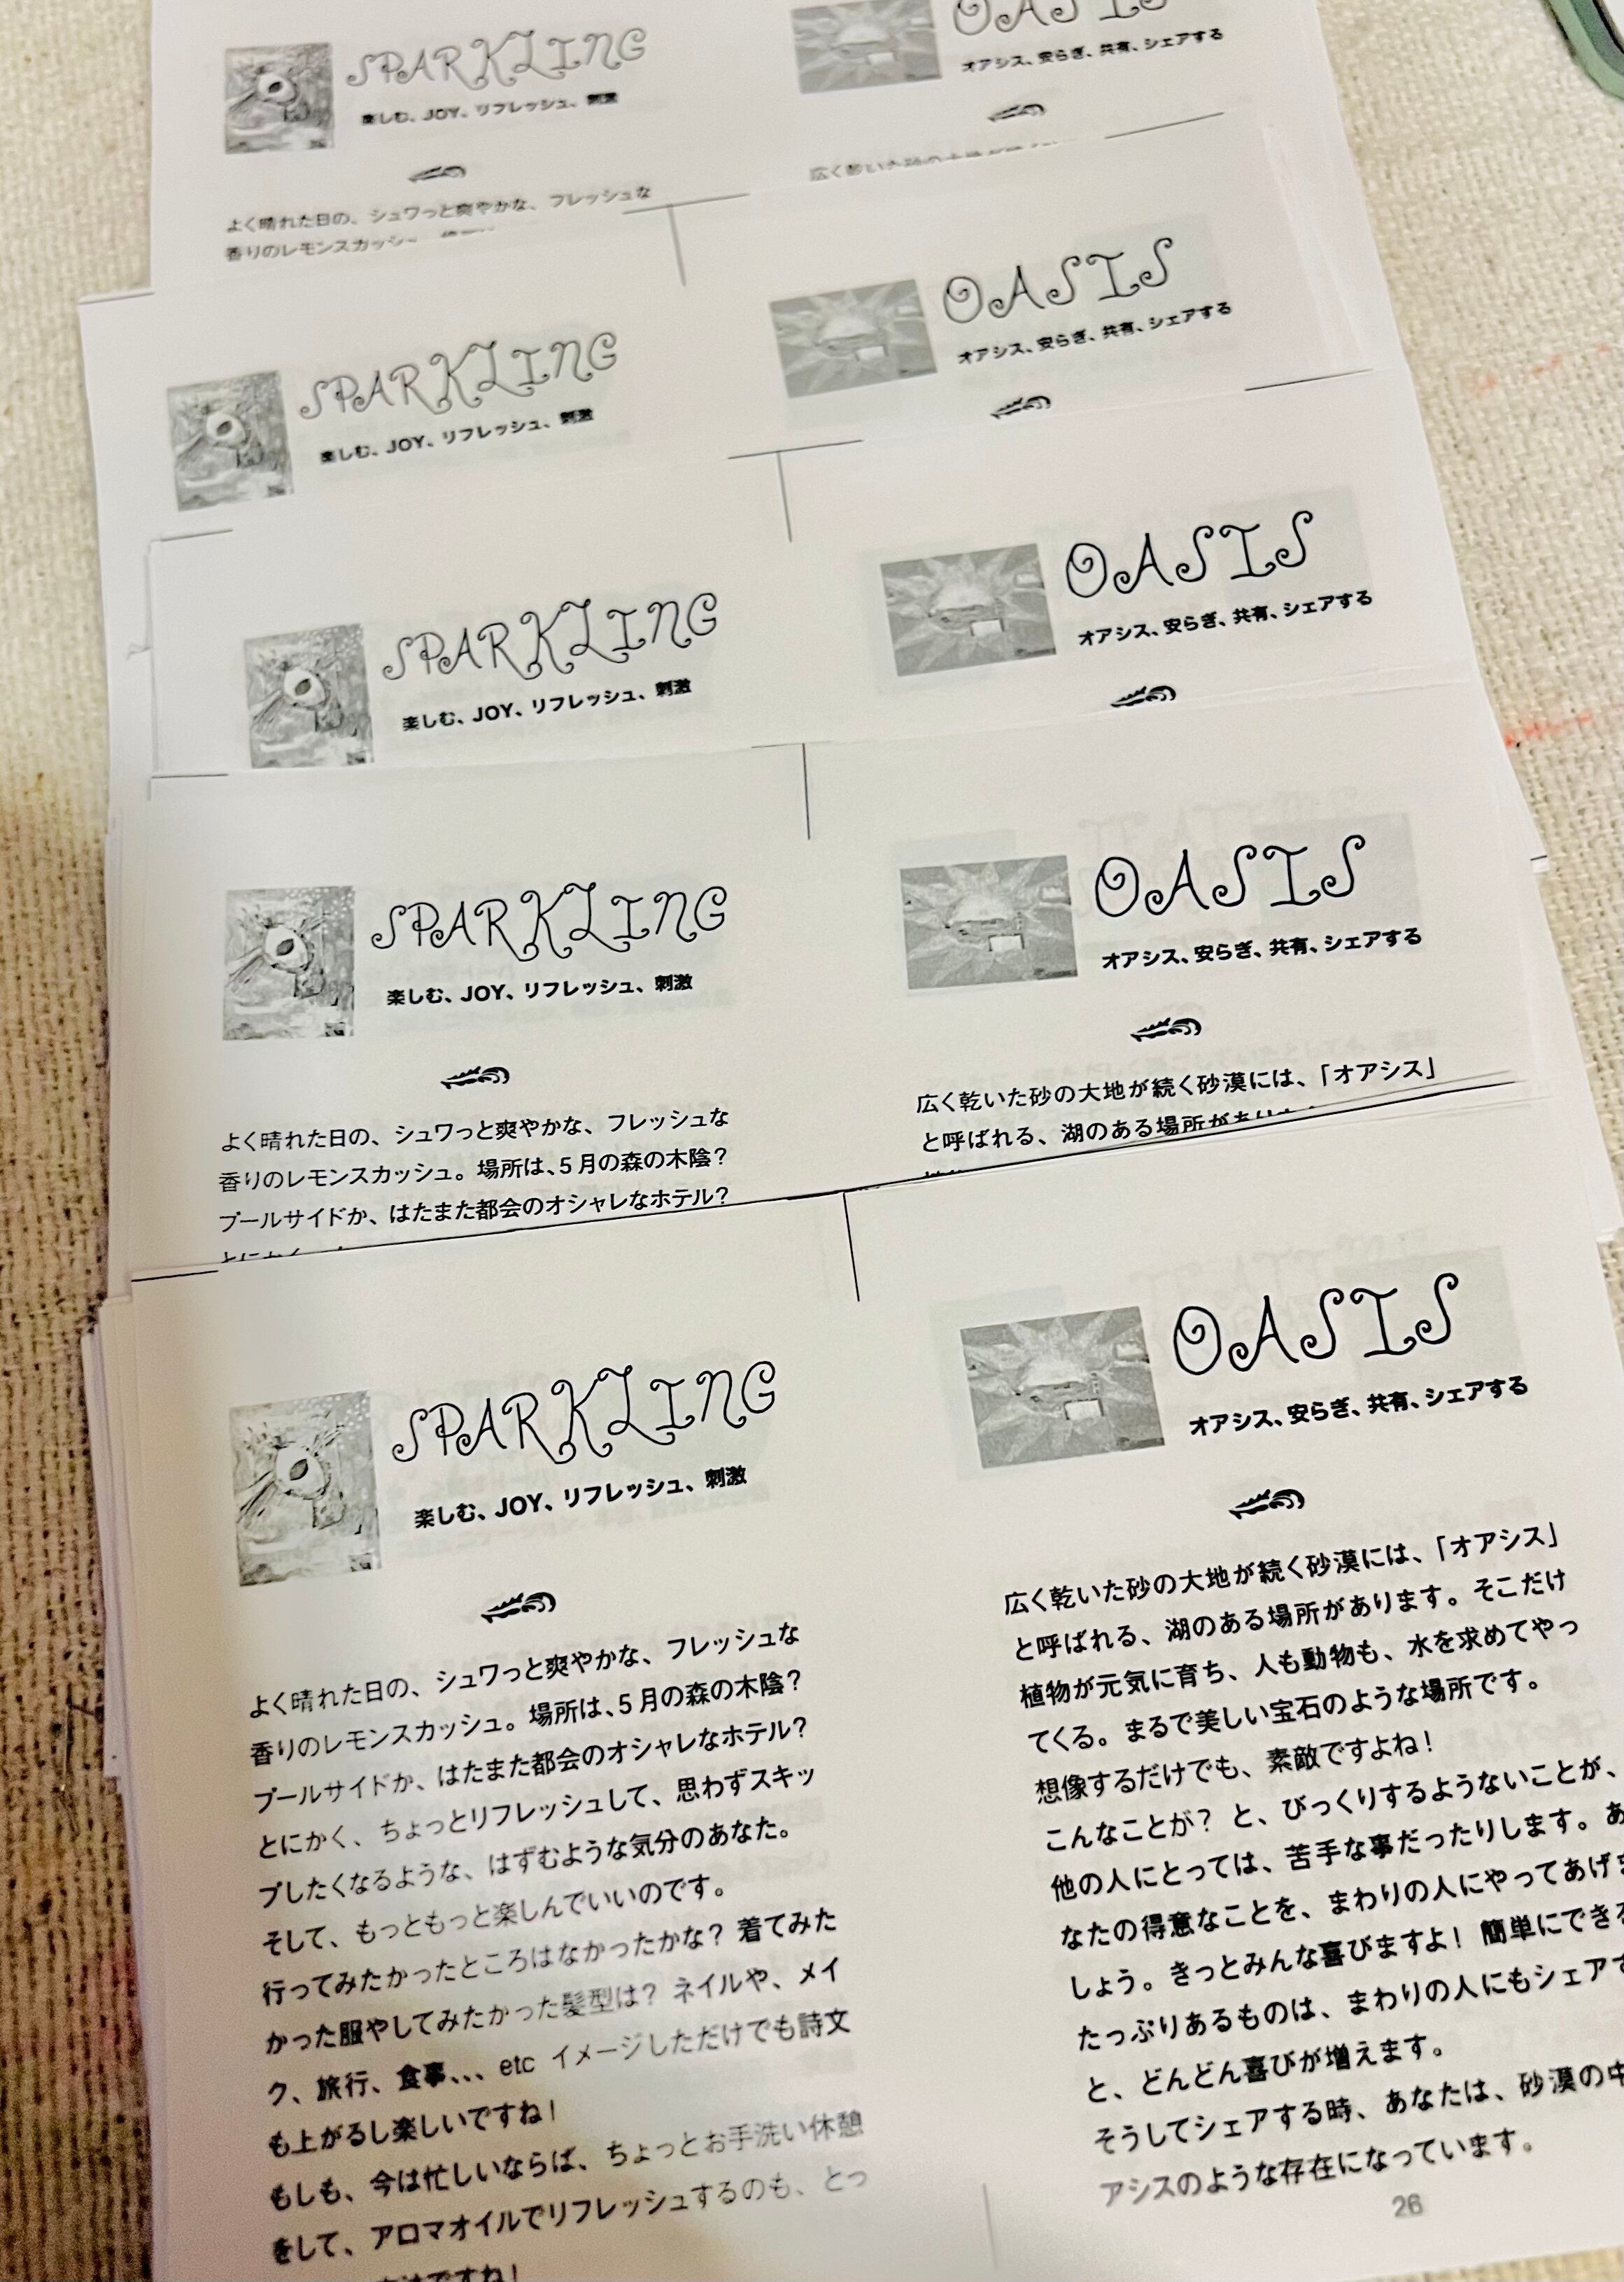 SPARKLING
楽しむ、JOY、リフレッシュ、刺激
よく晴れた日の、シュワっと爽やかな、フレッシュな
香りのレモンスカッシュ。
OASIS
オアシス、安らぎ、共有、シェアする
SPARKLING
楽しむ、JOY、リフレッシュ、刺激
OASIS
オアシス、安らぎ、共有、シェアする
SPARKLING
楽しむ、JOY、リフレッシュ、刺激
OASIS
オアシス、安らぎ、共有、シェアする
SPARKLING
楽しむ、JOY、リフレッシュ、刺激
よく晴れた日の、シュワっと爽やかな、フレッシュな
香りのレモンスカッシュ。場所は、5月の森の木陰?
プールサイドか、はたまた都会のオシャレなホテル?
OASIS
オアシス、安らぎ、共有、シェアする
広く乾いた砂の大地が続く砂漠には、「オアシス」
と呼ばれる、湖のある場所があります
SPARKLING
楽しむ、JOY、リフレッシュ、刺激
よく晴れた日の、シュワっと爽やかな、フレッシュな
香りのレモンスカッシュ。場所は、5月の森の木陰?
プールサイドか、はたまた都会のオシャレなホテル?
とにかく、ちょっとリフレッシュして、思わずスキッ
プしたくなるような、はずむような気分のあなた。
そして、もっともっと楽しんでいいのです。
行ってみたかったところはなかったかな? 着てみた
かった服やしてみたかった髪型は? ネイルや、メイ
ク、旅行、食事、、、etc イメージしただけでも詩文
も上がるし楽しいですね!
もしも、今は忙しいならば、ちょっとお手洗い休憩
をして、アロマオイルでリフレッシュするのも、とっ
ですね!
OASIS
オアシス、安らぎ、共有、シェアする
広く乾いた砂の大地が続く砂漠には、「オアシス」
と呼ばれる、湖のある場所があります。そこだけ
植物が元気に育ち、人も動物も、水を求めてやっ
てくる。まるで美しい宝石のような場所です。
想像するだけでも、素敵ですよね!
こんなことが? と、びっくりするようないことが、
他の人にとっては、苦手な事だったりします。あ
なたの得意なことを、まわりの人にやってあげま
しょう。きっとみんな喜びますよ! 簡単にできる
たっぷりあるものは、まわりの人にもシェアす
と、どんどん喜びが増えます。
そうしてシェアする時、あなたは、砂漠の中
アシスのような存在になっています。
26